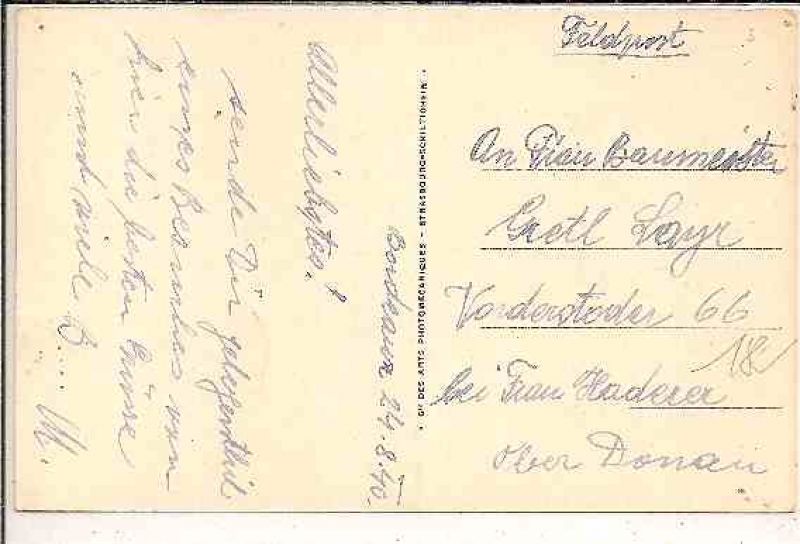 Feldpost
An Frau Baumeister
Gretl Sayr
Vorderstoder 66
18
bei Frau Haderer
Ober Donau
Cie DES ARTS PHOTOMÉCANIQUES - STRASBOURG-SCHILTIGHEIM
Bordeaux 24.8.40.
Allerliebstes!
sende Dir gelegentlich
eines Besuches von
hier die besten Grüsse
und viele B... M.